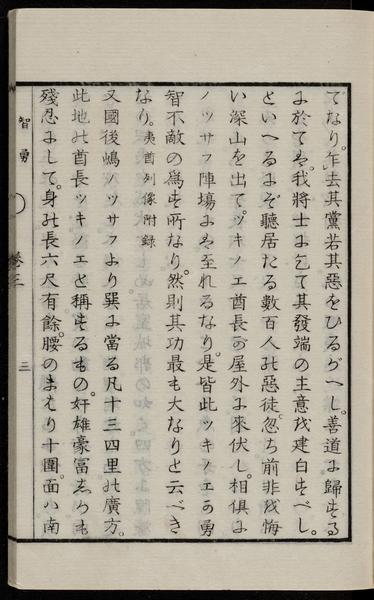 てなり。乍去其黨若其惡をひるがへし。善道に歸する
に於ては。我將士に乞て其發端の主意を建白すべし。
といへるにぞ聽居たる數百人の惡徒。忽ち前非を悔
い深山を出て。ツキノエ酋長の屋外に來伏し。相倶に
ノツサフ陣場には至れるなり。是皆此ツキノエの勇
智不敵の爲す所なり。然則其功最も大なりと云べき
なり。夷酋列像附録
又國後嶋ノツサフより巽に當る凡十三四里の廣方。
此地の酋長ツキノエと稱するもの。奸雄豪富しかも
殘忍にして。身の長六尺有餘。腰のまはり十圍。面ハ南
智勇
卷三
三